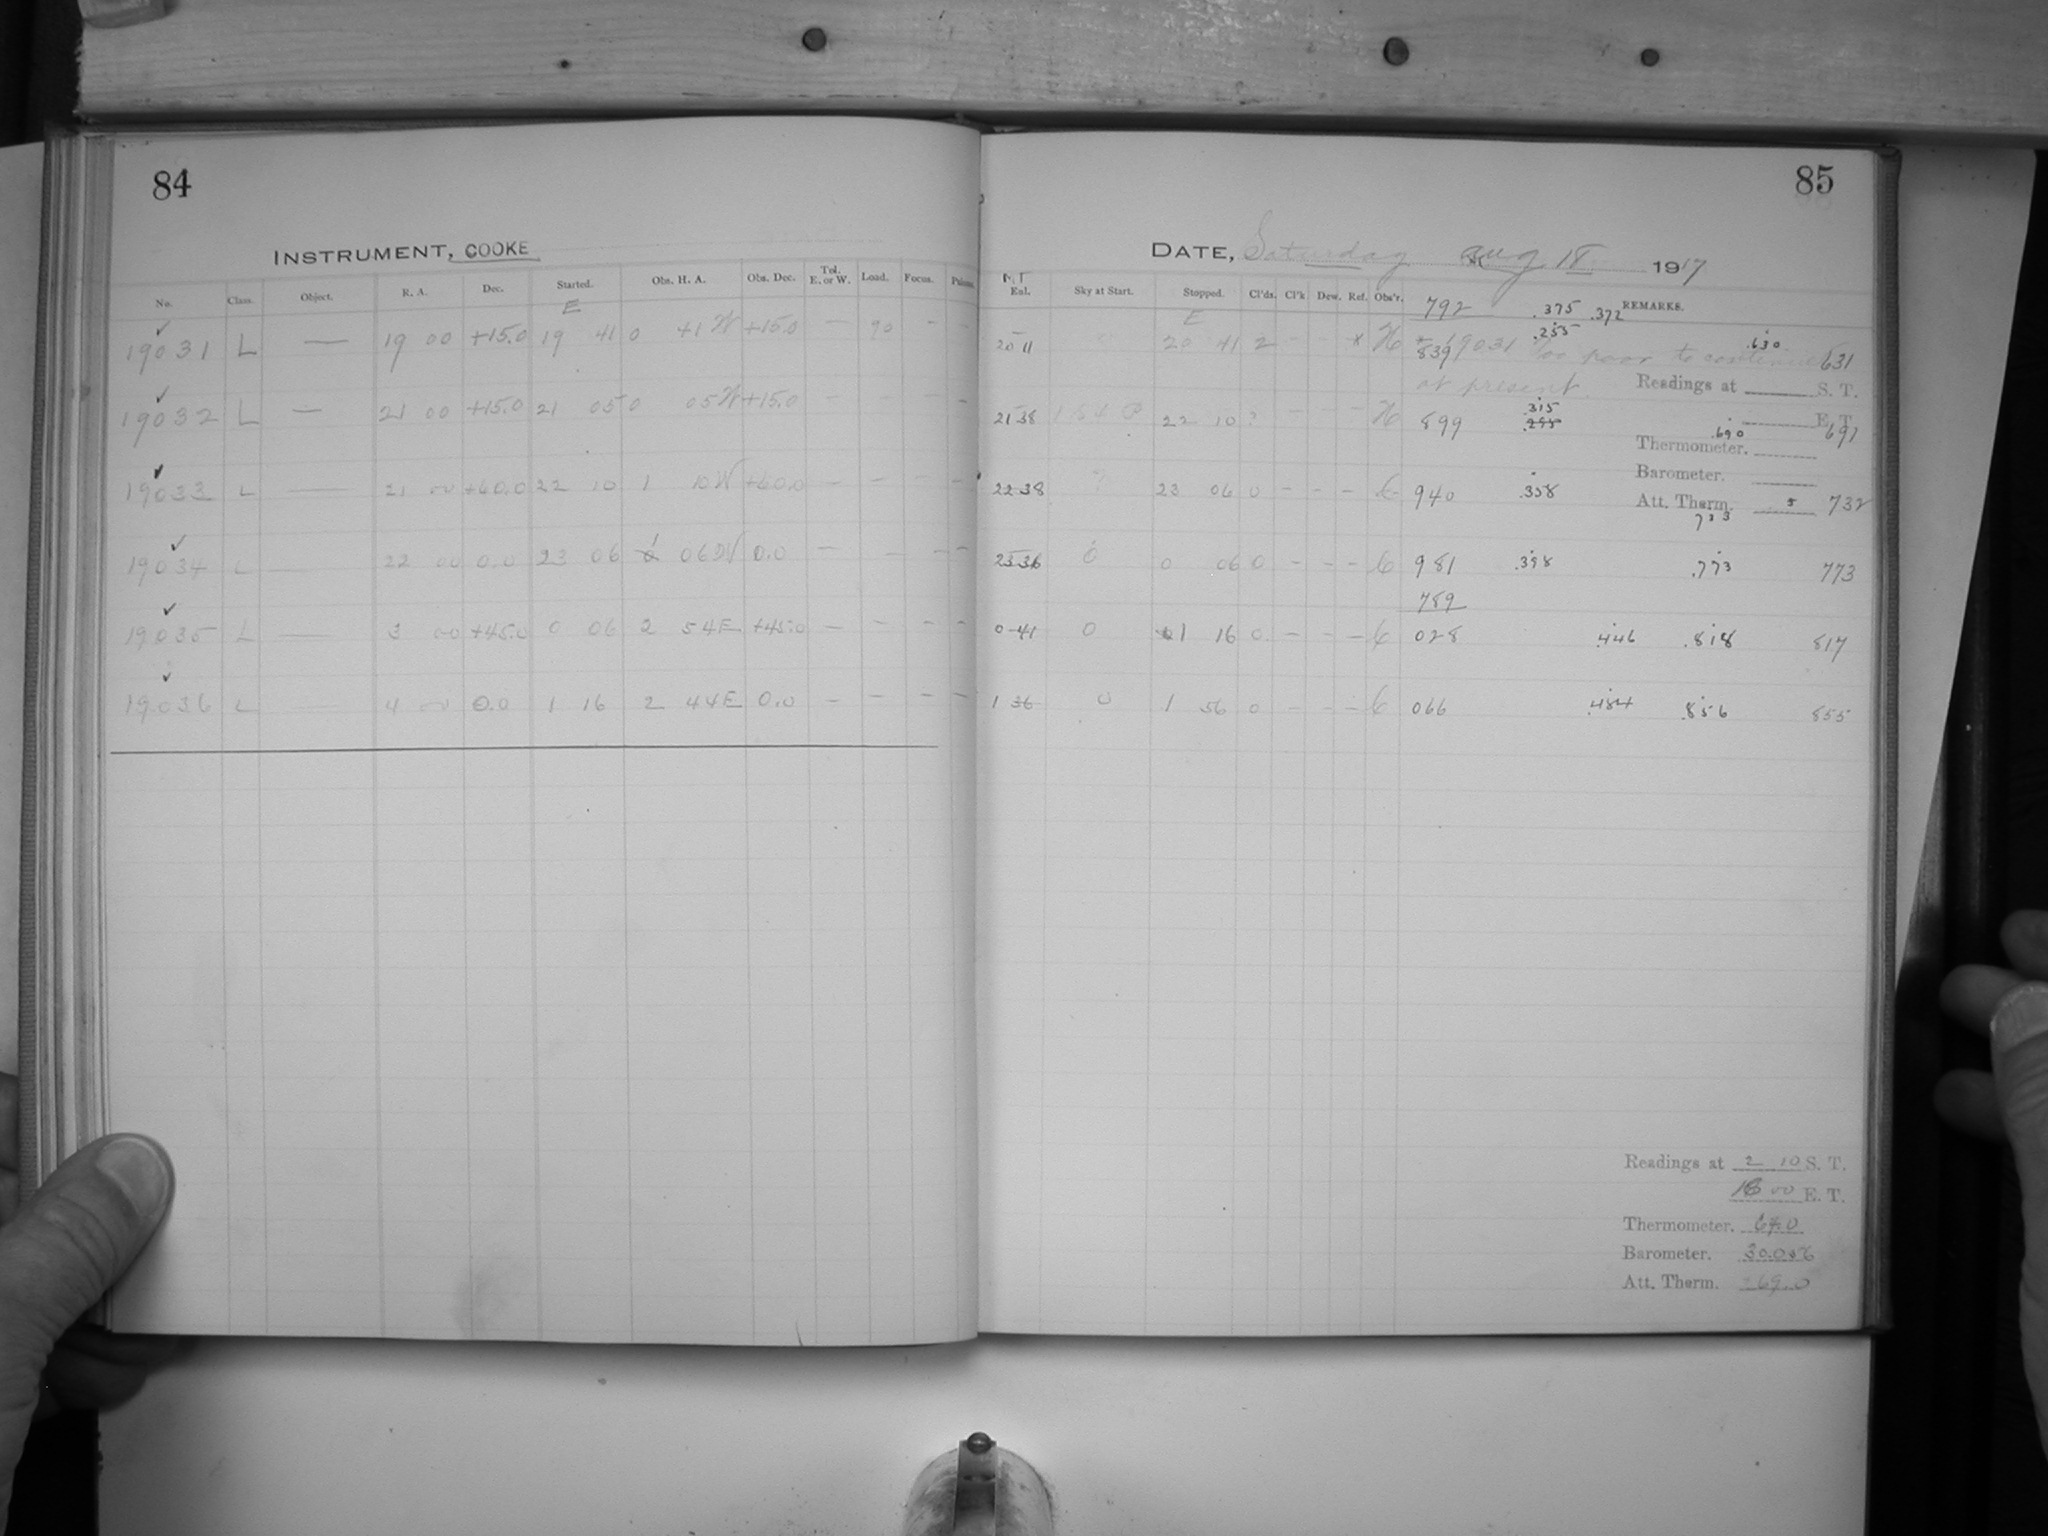 84
INSTRUMENT, COOKE
No. Class. Object. R. A. Dec. Started. Obs. H. A. Obs. Dec. Tel. E. or W. Load. Focus.
E
19031 L — 19 00 +15.0 19 41 0 41 W +15.0 — 90 - -
19032 L — 21 00 +15.0 21 05 0 05 W +15.0 - - - -
19033 L — 21 00 +60.0 22 10 1 10 W +60.0 - - - -
19034 L — 22 00 0.0 23 06 1 06 W 0.0 - - - -
19035 L — 3 00 +45.0 0 06 2 54 E +45.0 - - - -
19036 L 4 00 0.0 1 16 2 44 E 0.0 - - - -
85
DATE, Saturday Aug 18 1917
Sky at Start. Stopped. Cl'ds. Cl'k Dew. Ref. Obs'r. REMARKS.
E 792 .375 .372
.255
20 11 20 41 2 - - * H 839 * 19031 Too poor to continue .630 631
at present
Readings at S. T.
21 38 22 10 ? - - - H 899 .315 .690 691
E. T.
Thermometer.
Barometer.
22 38 ? 23 06 0 - - - C 940 .358 732
Att. Therm. 5
733
23 36 0 0 06 0 - - - C 981 .398 .773 773
789
0 41 0 1 16 0 - - - C 028 .446 .818 817
1 36 0 1 56 0 - - - C 066 .484 .856 855
Readings at 2 10 S. T.
16 00 E. T.
Thermometer. 67.0
Barometer. 30.056
Att. Therm. 69.0